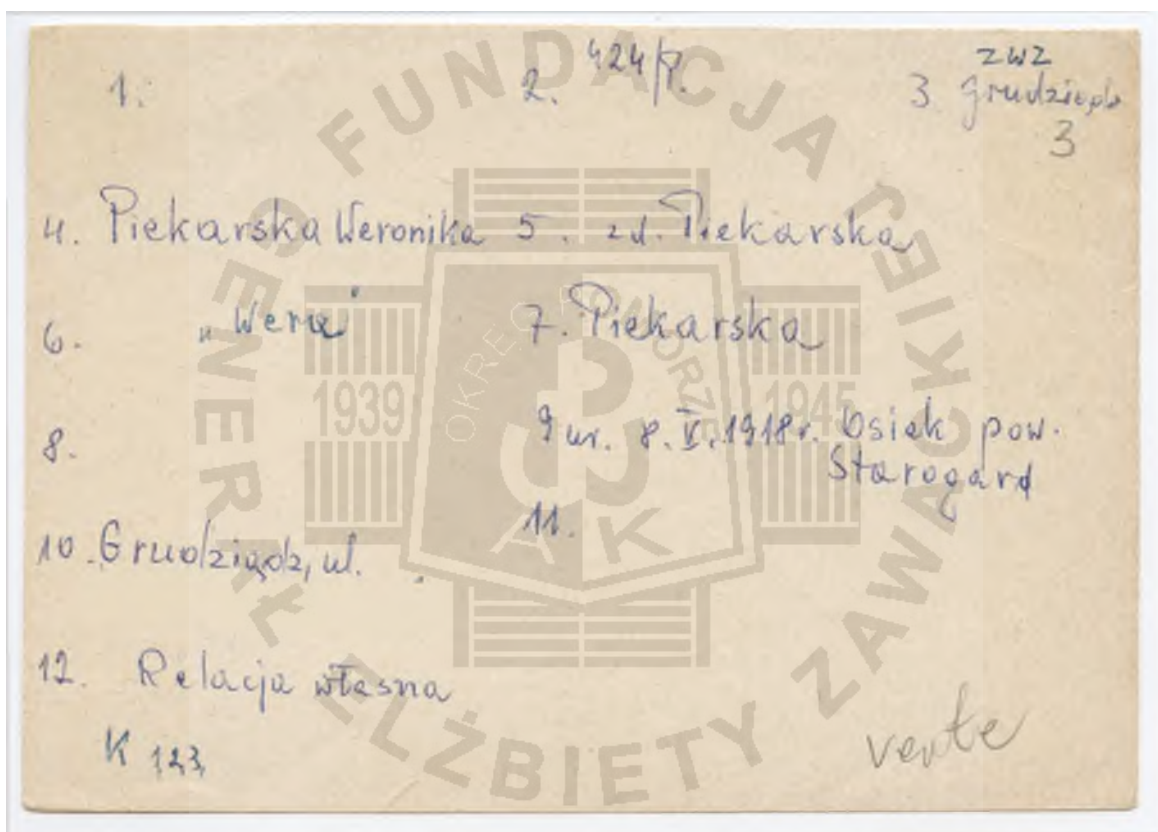 1. 2. 424/P. ZWZ
3 Grudziądz
3
4. Piekarska Weronika 5. zd. Piekarska
6. "Wera" 7. Piekarska
8. 9 ur. 8.V.1918r. Osiek pow.
Starogard
10. Grudziądz, ul. 11.
12. Relacja własna
K 123
verte
FUNDACJA GENERAŁ ELŻBIETY ZAWACKIEJ
OKRĘG POMORZE
1939 1945
AK